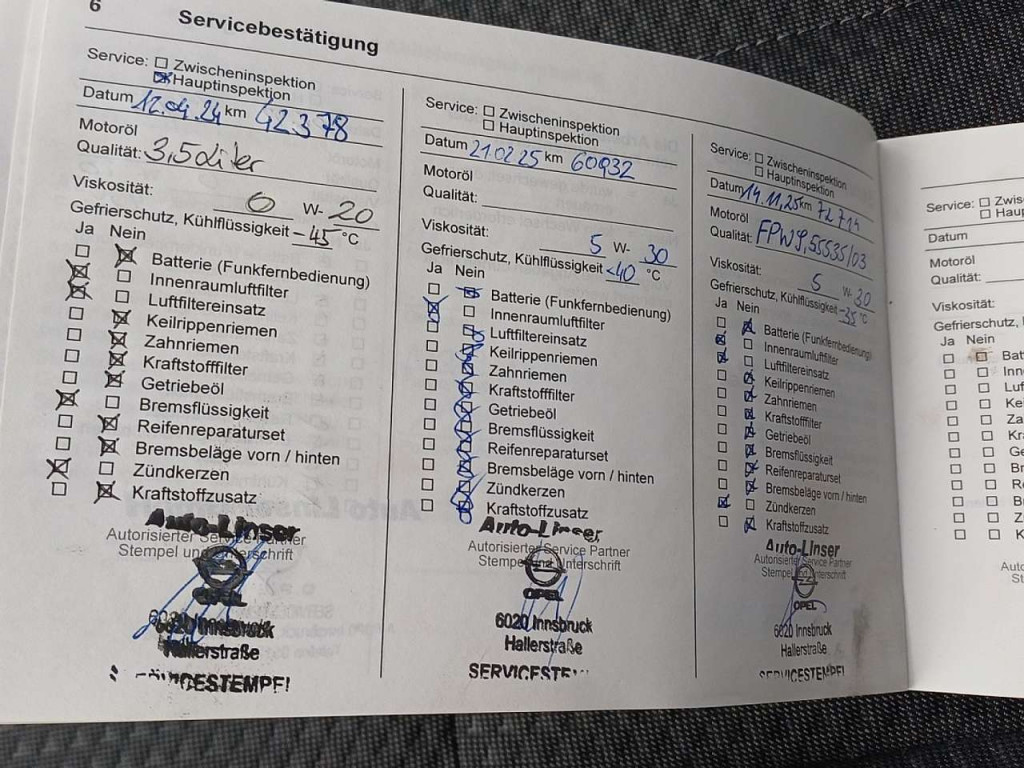 6 Servicebestätigung
Service: ☐ Zwischeninspektion
☒ Hauptinspektion
Datum 12.04.24 km 42378
Motoröl
Qualität: 3,5 Liter
Viskosität: 0 W- 20
Gefrierschutz, Kühlflüssigkeit -45 °C
Ja Nein
☐ ☒ Batterie (Funkfernbedienung)
☒ ☐ Innenraumluftfilter
☒ ☐ Luftfiltereinsatz
☐ ☒ Keilrippenriemen
☐ ☒ Zahnriemen
☐ ☒ Kraftstofffilter
☐ ☒ Getriebeöl
☒ ☐ Bremsflüssigkeit
☐ ☒ Reifenreparaturset
☐ ☒ Bremsbeläge vorn / hinten
☒ ☐ Zündkerzen
☐ ☒ Kraftstoffzusatz
Auto-Linser
Autorisierter Service Partner
Stempel und Unterschrift
OPEL
6020 Innsbruck
Hallerstraße
SERVICESTEMPEL
Service: ☐ Zwischeninspektion
☐ Hauptinspektion
Datum 21.02.25 km 60932
Motoröl
Qualität:
Viskosität: 5 W- 30
Gefrierschutz, Kühlflüssigkeit <-40 °C
Ja Nein
☐ ☒ Batterie (Funkfernbedienung)
☒ ☐ Innenraumluftfilter
☐ ☒ Luftfiltereinsatz
☐ ☒ Keilrippenriemen
☐ ☒ Zahnriemen
☐ ☒ Kraftstofffilter
☐ ☒ Getriebeöl
☐ ☒ Bremsflüssigkeit
☐ ☒ Reifenreparaturset
☐ ☒ Bremsbeläge vorn / hinten
☐ ☒ Zündkerzen
☐ ☒ Kraftstoffzusatz
Auto-Linser
Autorisierter Service Partner
Stempel und Unterschrift
OPEL
6020 Innsbruck
Hallerstraße
SERVICESTE
Service: ☐ Zwischeninspektion
☐ Hauptinspektion
Datum 14.11.25 km 72714
Motoröl
Qualität: FPW9.55535/03
Viskosität: 5 W- 30
Gefrierschutz, Kühlflüssigkeit -35 °C
Ja Nein
☐ ☒ Batterie (Funkfernbedienung)
☒ ☐ Innenraumluftfilter
☒ ☐ Luftfiltereinsatz
☐ ☒ Keilrippenriemen
☐ ☒ Zahnriemen
☐ ☒ Kraftstofffilter
☐ ☒ Getriebeöl
☐ ☒ Bremsflüssigkeit
☐ ☒ Reifenreparaturset
☐ ☒ Bremsbeläge vorn / hinten
☒ ☐ Zündkerzen
☐ ☒ Kraftstoffzusatz
Auto-Linser
Autorisierter Service Partner
Stempel und Unterschrift
OPEL
6020 Innsbruck
Hallerstraße
SERVICESTEMPEL
Service: ☐ Zwis
☐ Haup
Datum
Motoröl
Qualität:
Viskosität:
Gefrierschutz,
Ja Nein
☐ ☐ Batt
☐ ☐ Inne
☐ ☐ Luf
☐ ☐ Kei
☐ ☐ Za
☐ ☐ Kra
☐ ☐ Ge
☐ ☐ Br
☐ ☐ Re
☐ ☐ B
☐ ☐ Z
☐ ☐ K
Auto
St